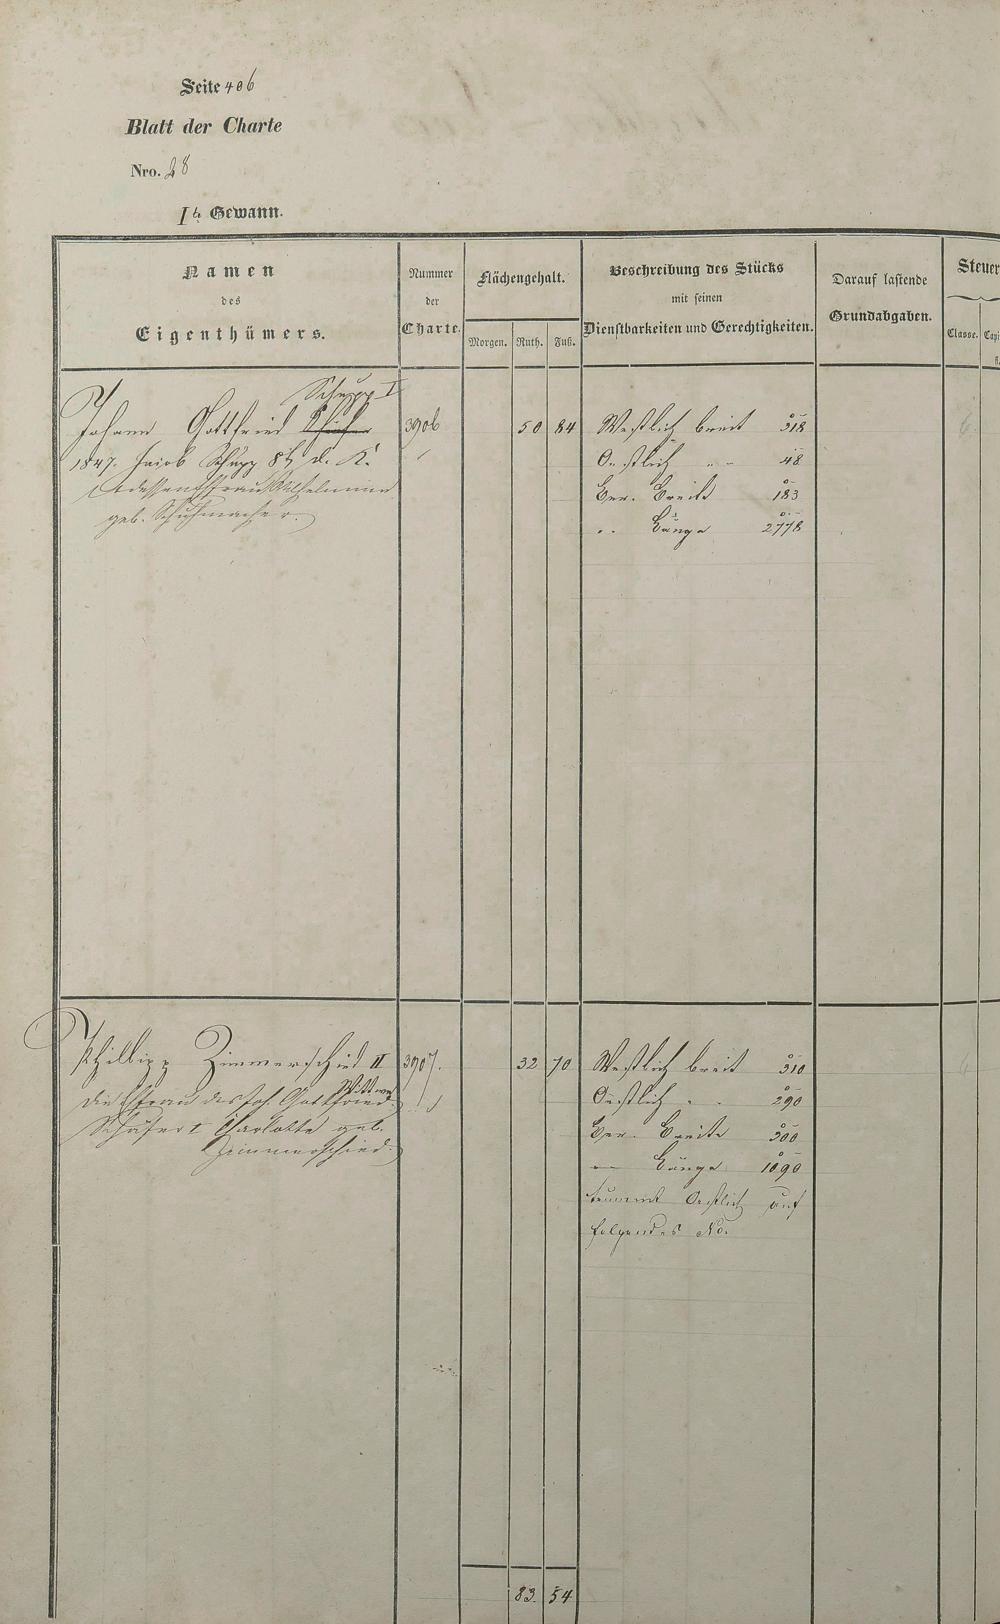 Seite 406
Blatt der Charte
Nro. 28
Ite Gewann.
Namen
des
Eigenthümers.
Nummer
der
Charte.
Flächengehalt.
Morgen. Ruth. Fuß.
Beschreibung des Stücks
mit seinen
Dienstbarkeiten und Gerechtigkeiten.
Darauf lastende
Grundabgaben.
Steuer
Classe.
Schupp I
Johann Gottfried 3906 50 84 Westlich breit 318
1847. Jacob Schupp 8t d. K. Oestlich " " 48
et dessen Ehefrau Wilhelmine Ber. Breite 183
geb. Schuhmacher. " Länge 2778
Phillipp Zimmerschied II 3907. 32 70 Westlich breit 310
Wittwe
die Ehefrau des Joh. Gottfried Oestlich " " 290
Schäfer I Charlotte geb. Ber. Breite 300
Zimmerschied. " Länge 1090
Oestlich auf
folgendes No.
83 54